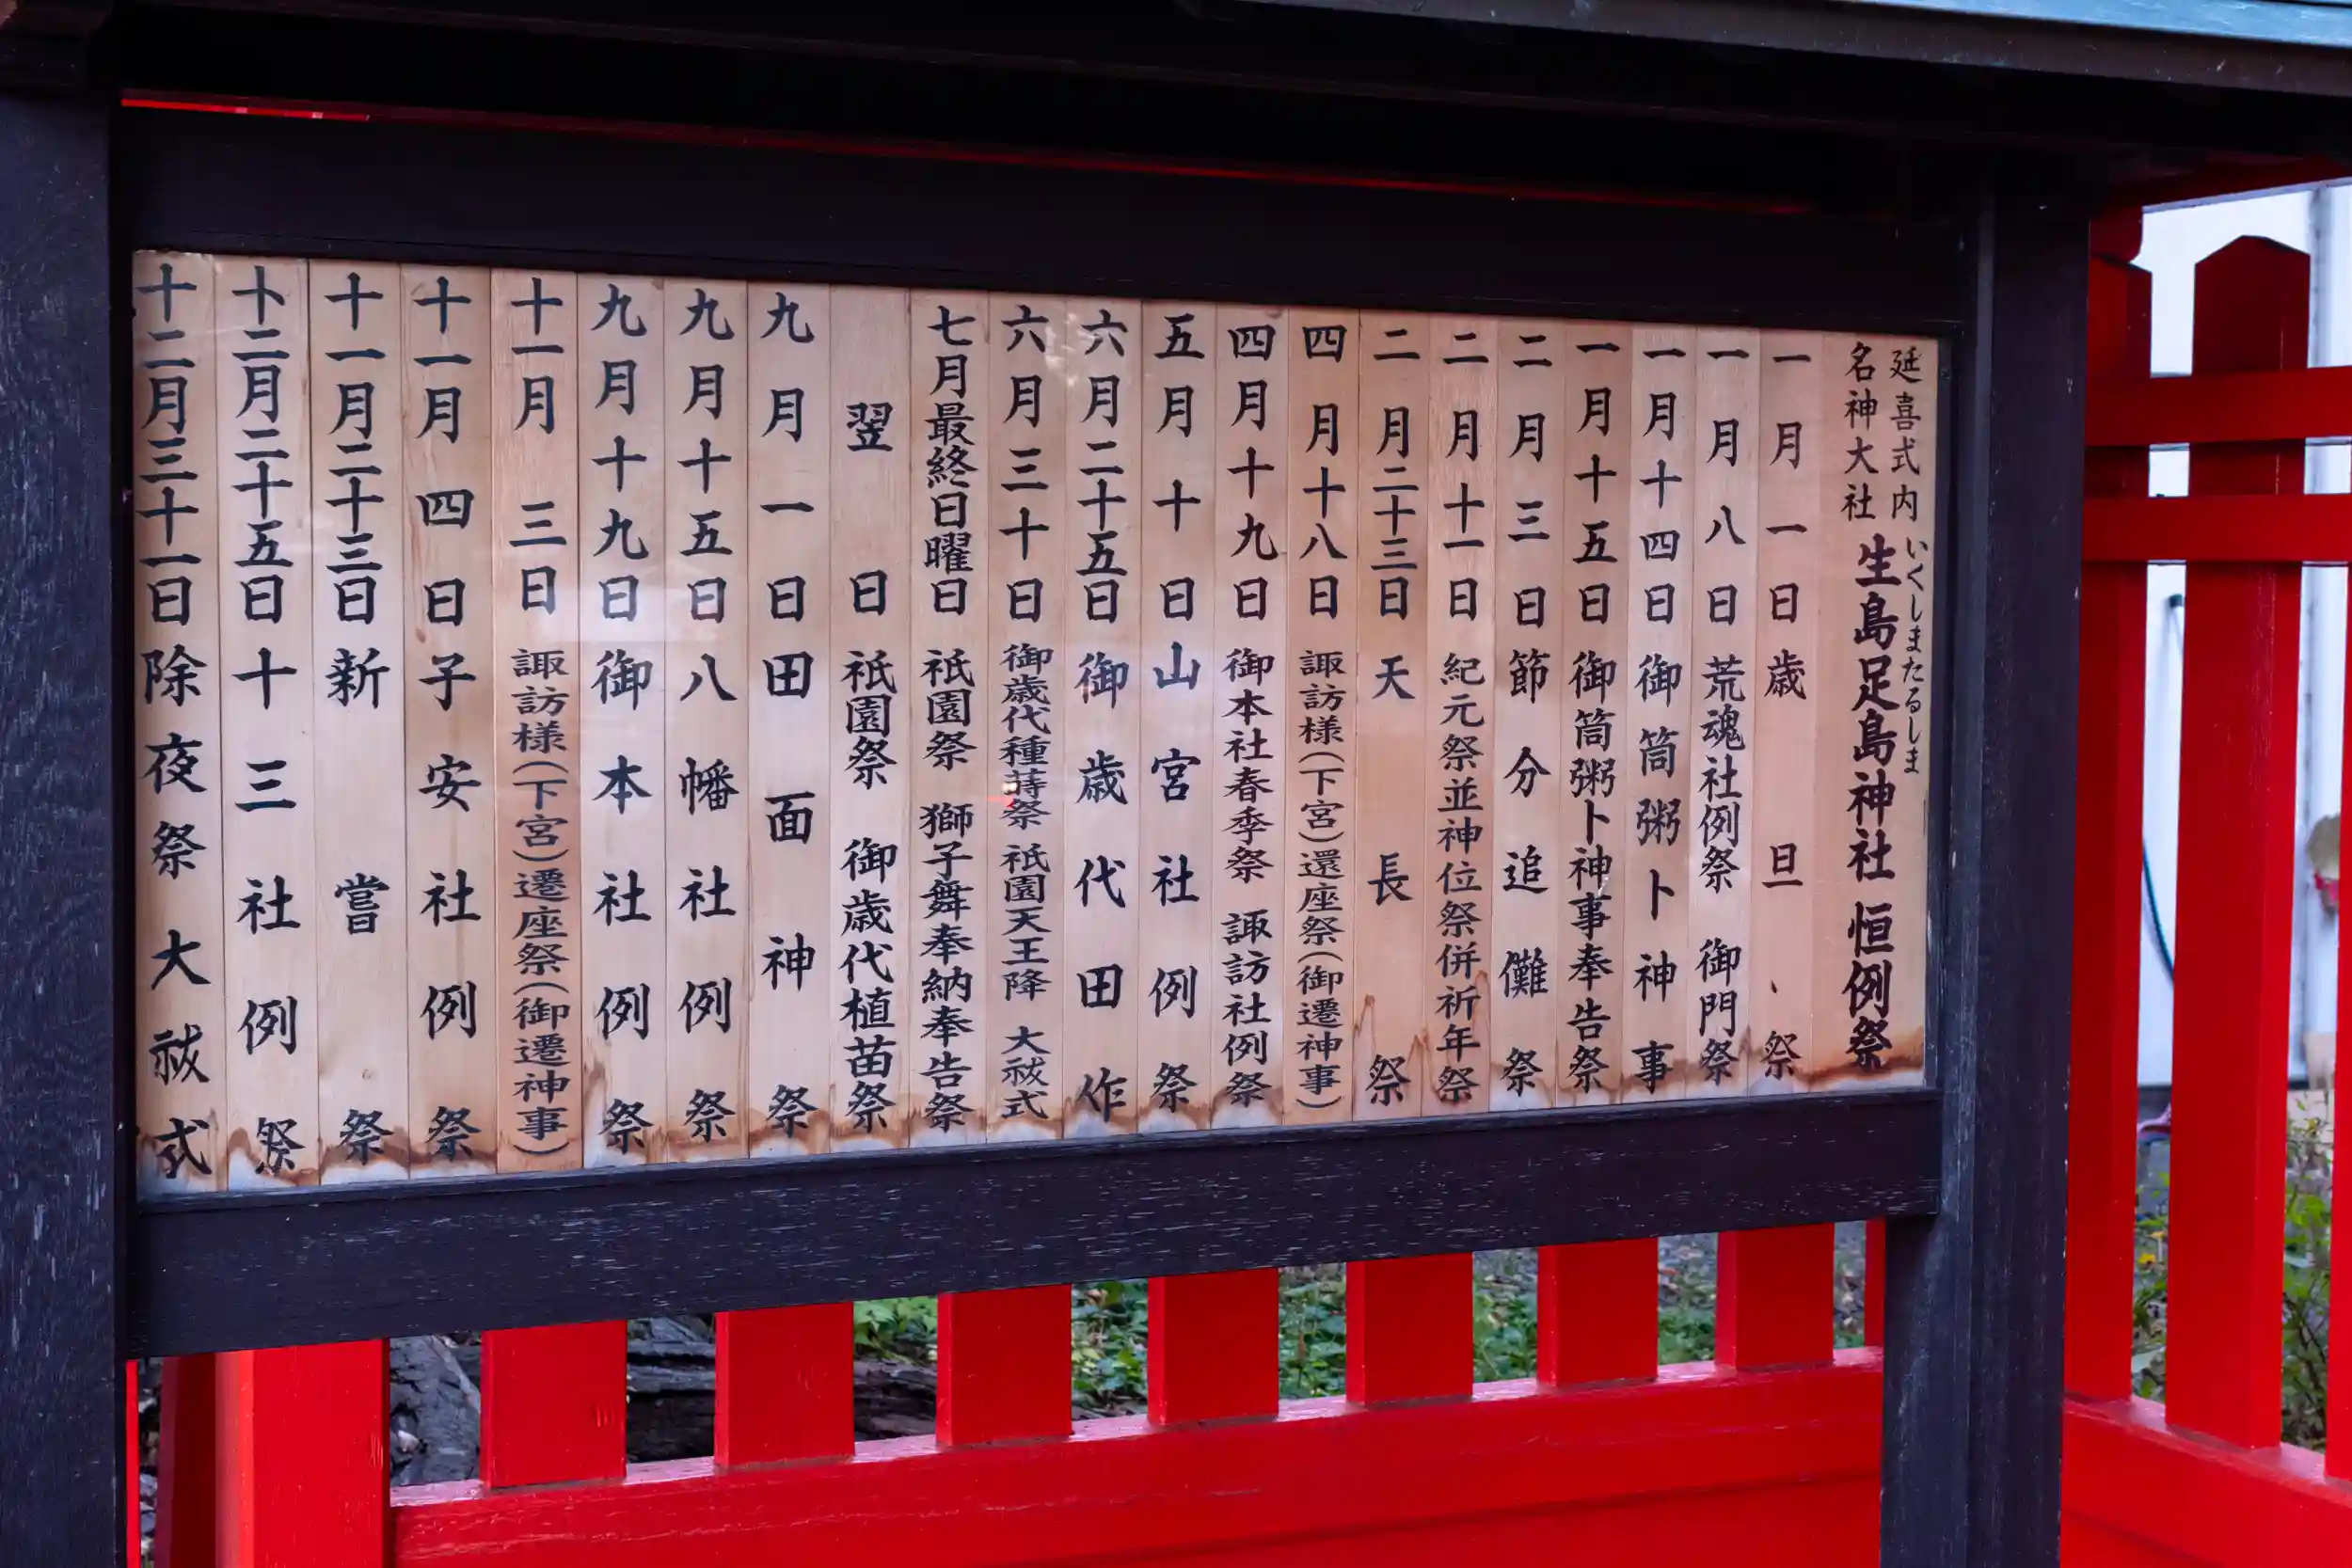 延喜式内
名神大社
生島足島神社 恒例祭
いくしまたるしま
一月一日 歳旦祭
一月八日 荒魂社例祭 御門祭
一月十四日 御筒粥卜神事
一月十五日 御筒粥卜神事奉告祭
二月三日 節分追儺祭
二月十一日 紀元祭並神位祭併祈年祭
二月二十三日 天長祭
四月十八日 諏訪様(下宮)還座祭(御遷神事)
四月十九日 御本社春季祭 諏訪社例祭
五月十日 山宮社例祭
六月二十五日 御歳代田作
六月三十日 御歳代種蒔祭 祇園天王降 大祓式
七月最終日曜日 祇園祭 獅子舞奉納奉告祭
翌日 祇園祭 御歳代植苗祭
九月一日 田面神祭
九月十五日 八幡社例祭
九月十九日 御本社例祭
十一月三日 諏訪様(下宮)遷座祭(御遷神事)
十一月四日 子安社例祭
十一月二十三日 新嘗祭
十二月二十五日 十三社例祭
十二月三十一日 除夜祭大祓式